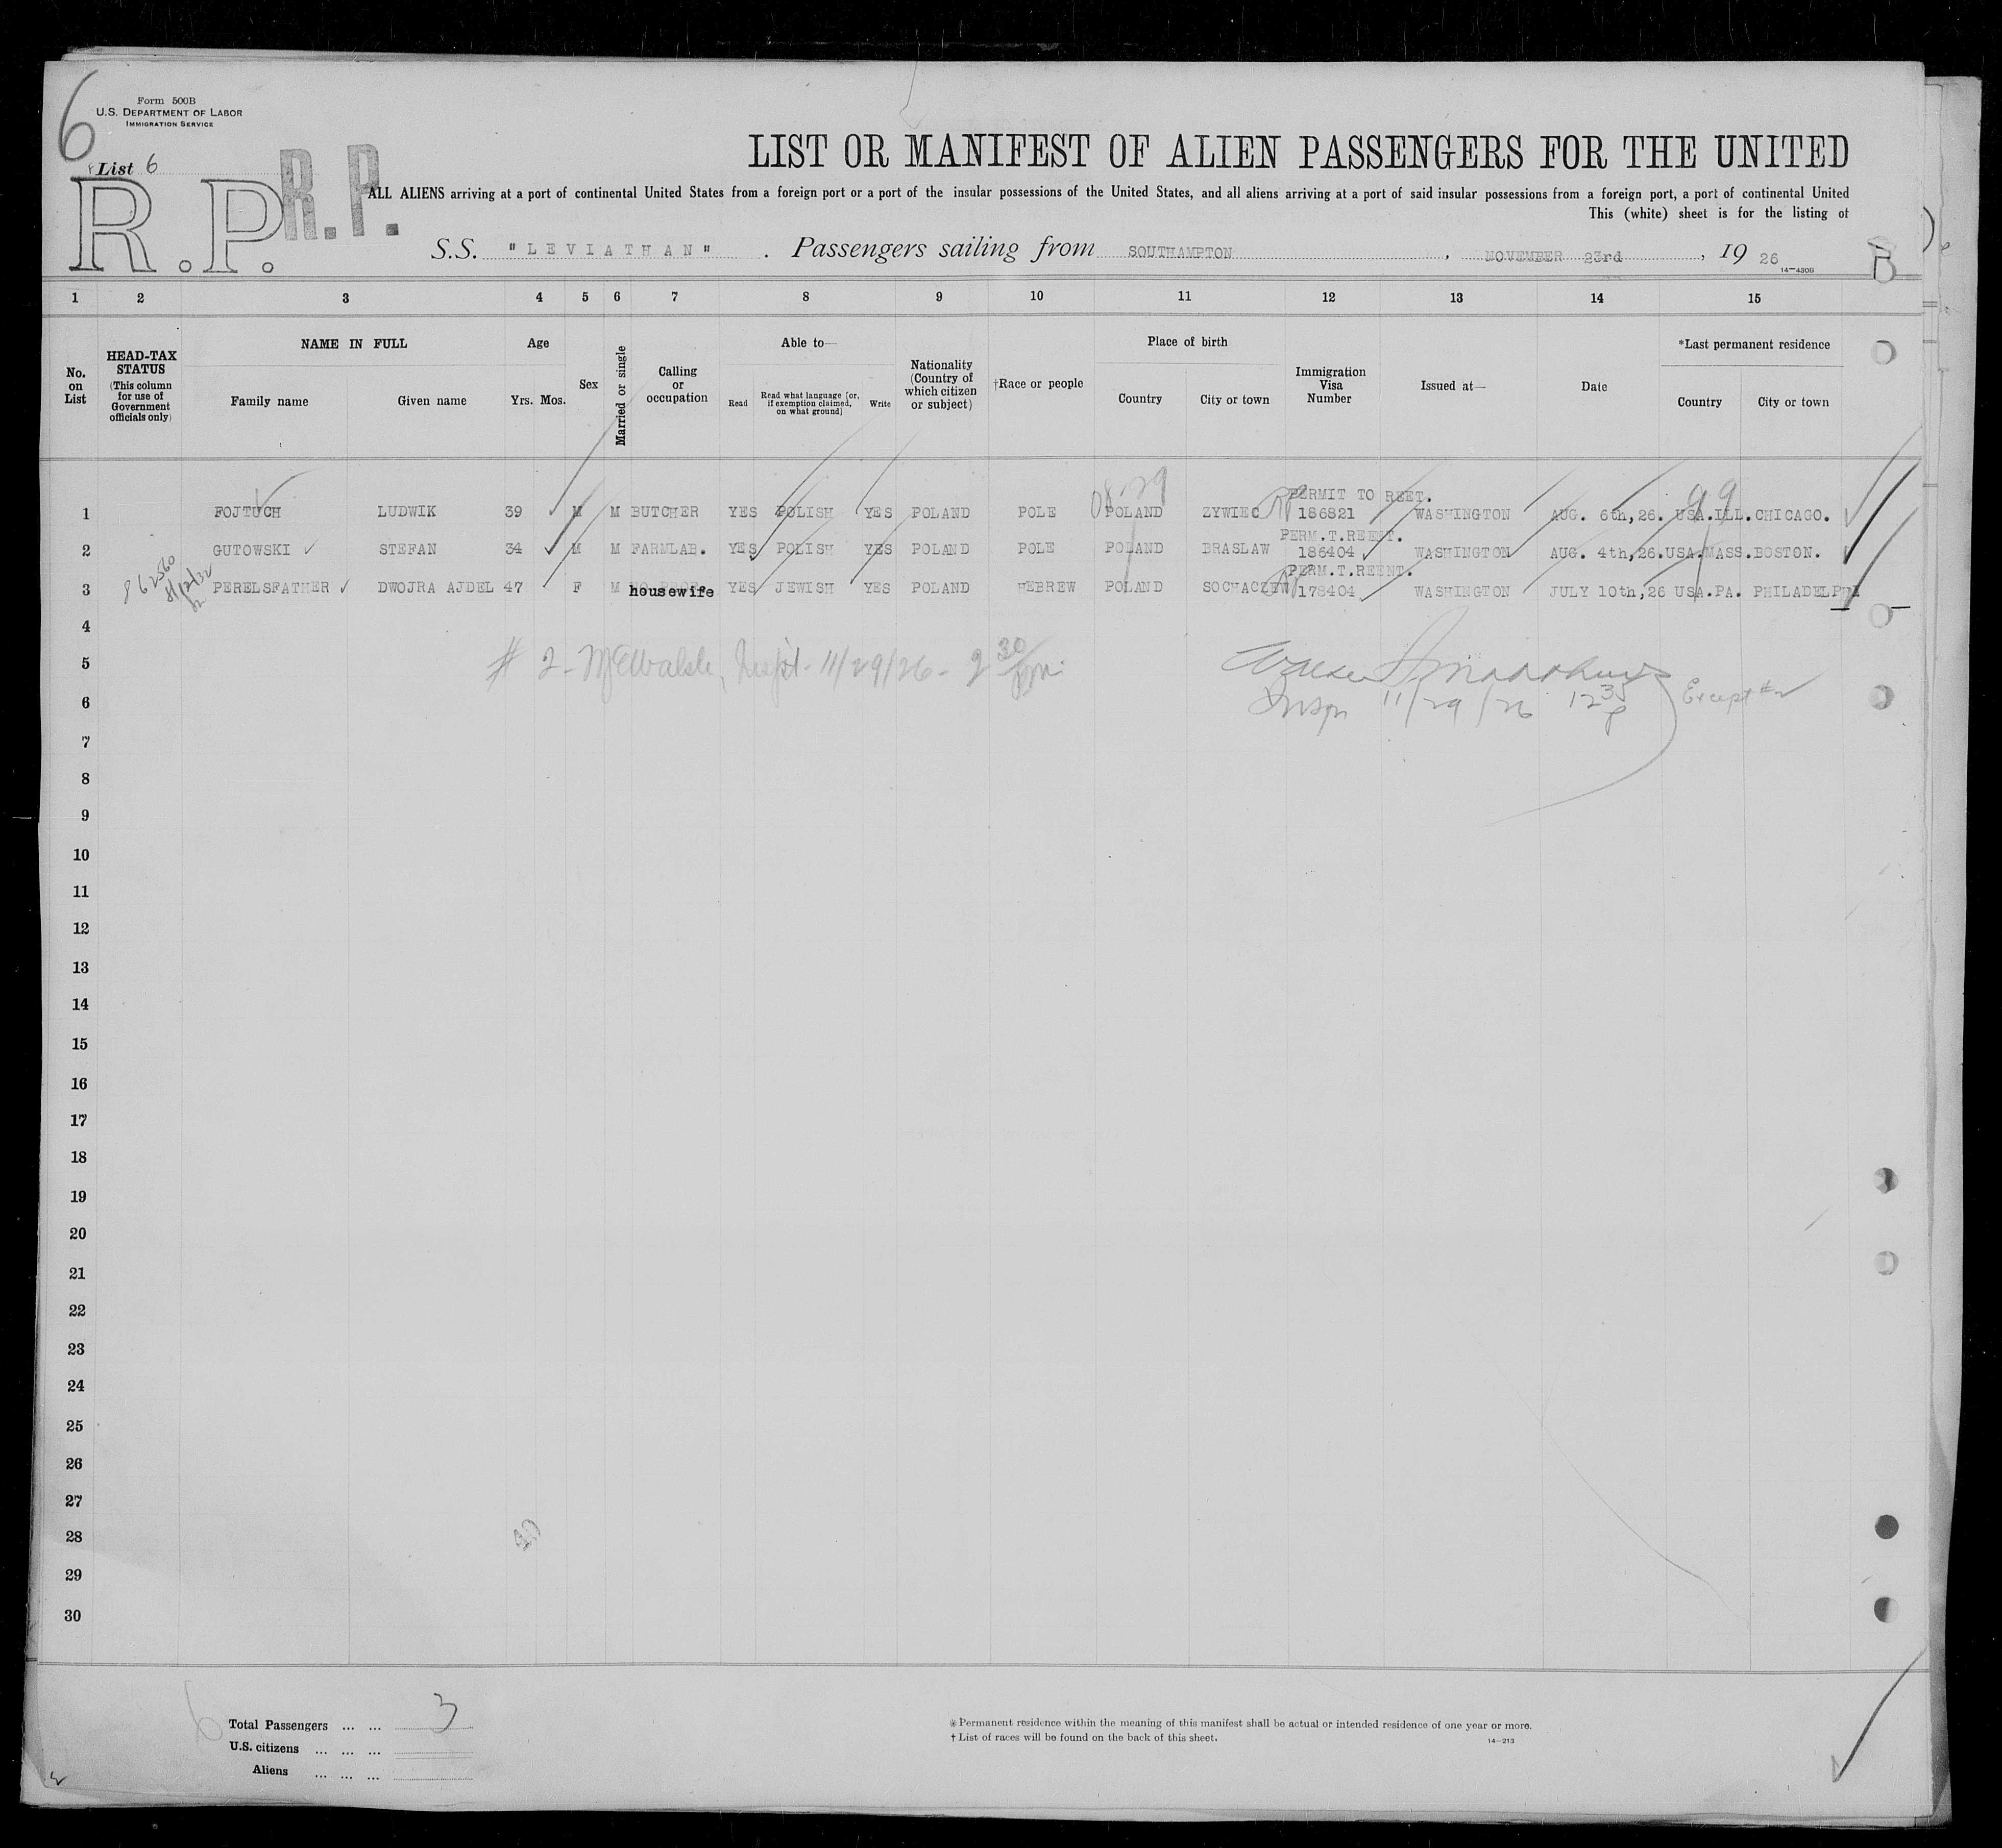 6
Form 500B
U.S. DEPARTMENT OF LABOR
IMMIGRATION SERVICE
List 6
R.P.
R.P.
LIST OR MANIFEST OF ALIEN PASSENGERS FOR THE UNITED
ALL ALIENS arriving at a port of continental United States from a foreign port or a port of the insular possessions of the United States, and all aliens arriving at a port of said insular possessions from a foreign port, a port of continental United
This (white) sheet is for the listing of
S.S. "LEVIATHAN". Passengers sailing from SOUTHAMPTON, NOVEMBER 23rd, 1926
14-430B
1 2 3 4 5 6 7 8 9 10 11 12 13 14 15
No. on List
HEAD-TAX STATUS (This column for use of Government officials only)
NAME IN FULL
Family name Given name
Age
Yrs. Mos.
Sex
Married or single
Calling or occupation
Able to—
Read Read what language [or, if exemption claimed, on what ground] Write
Nationality (Country of which citizen or subject)
†Race or people
Place of birth
Country City or town
Immigration Visa Number
Issued at—
Date
*Last permanent residence
Country City or town
08.29
99
PERMIT TO REET.
1 FOJTUCH LUDWIK 39 M M BUTCHER YES POLISH YES POLAND POLE POLAND ZYWIEC 186821 WASHINGTON AUG. 6th,26. USA.ILL.CHICAGO.
PERM.T.REENT.
2 GUTOWSKI STEFAN 34 M M FARMLAB. YES POLISH YES POLAND POLE POLAND BRASLAW 186404 WASHINGTON AUG. 4th,26.USA.MASS.BOSTON.
PERM.T.REENT.
3 PERELSFATHER DWOJRA AJDEL 47 F M housewife YES JEWISH YES POLAND HEBREW POLAND SOCHACZEW 178404 WASHINGTON JULY 10th,26 USA.PA. PHILADELPHI
4
5 # 2 - 11/29/26 - 2 30 pm.
6 Insp 11/29/26 12 35 p Except #2
7
8
9
10
11
12
13
14
15
16
17
18
19
20
21
22
23
24
25
26
27
28
29
30
40
Total Passengers ... ... 3
U.S. citizens ... ... ...
Aliens ... ... ...
* Permanent residence within the meaning of this manifest shall be actual or intended residence of one year or more.
† List of races will be found on the back of this sheet.
14-213